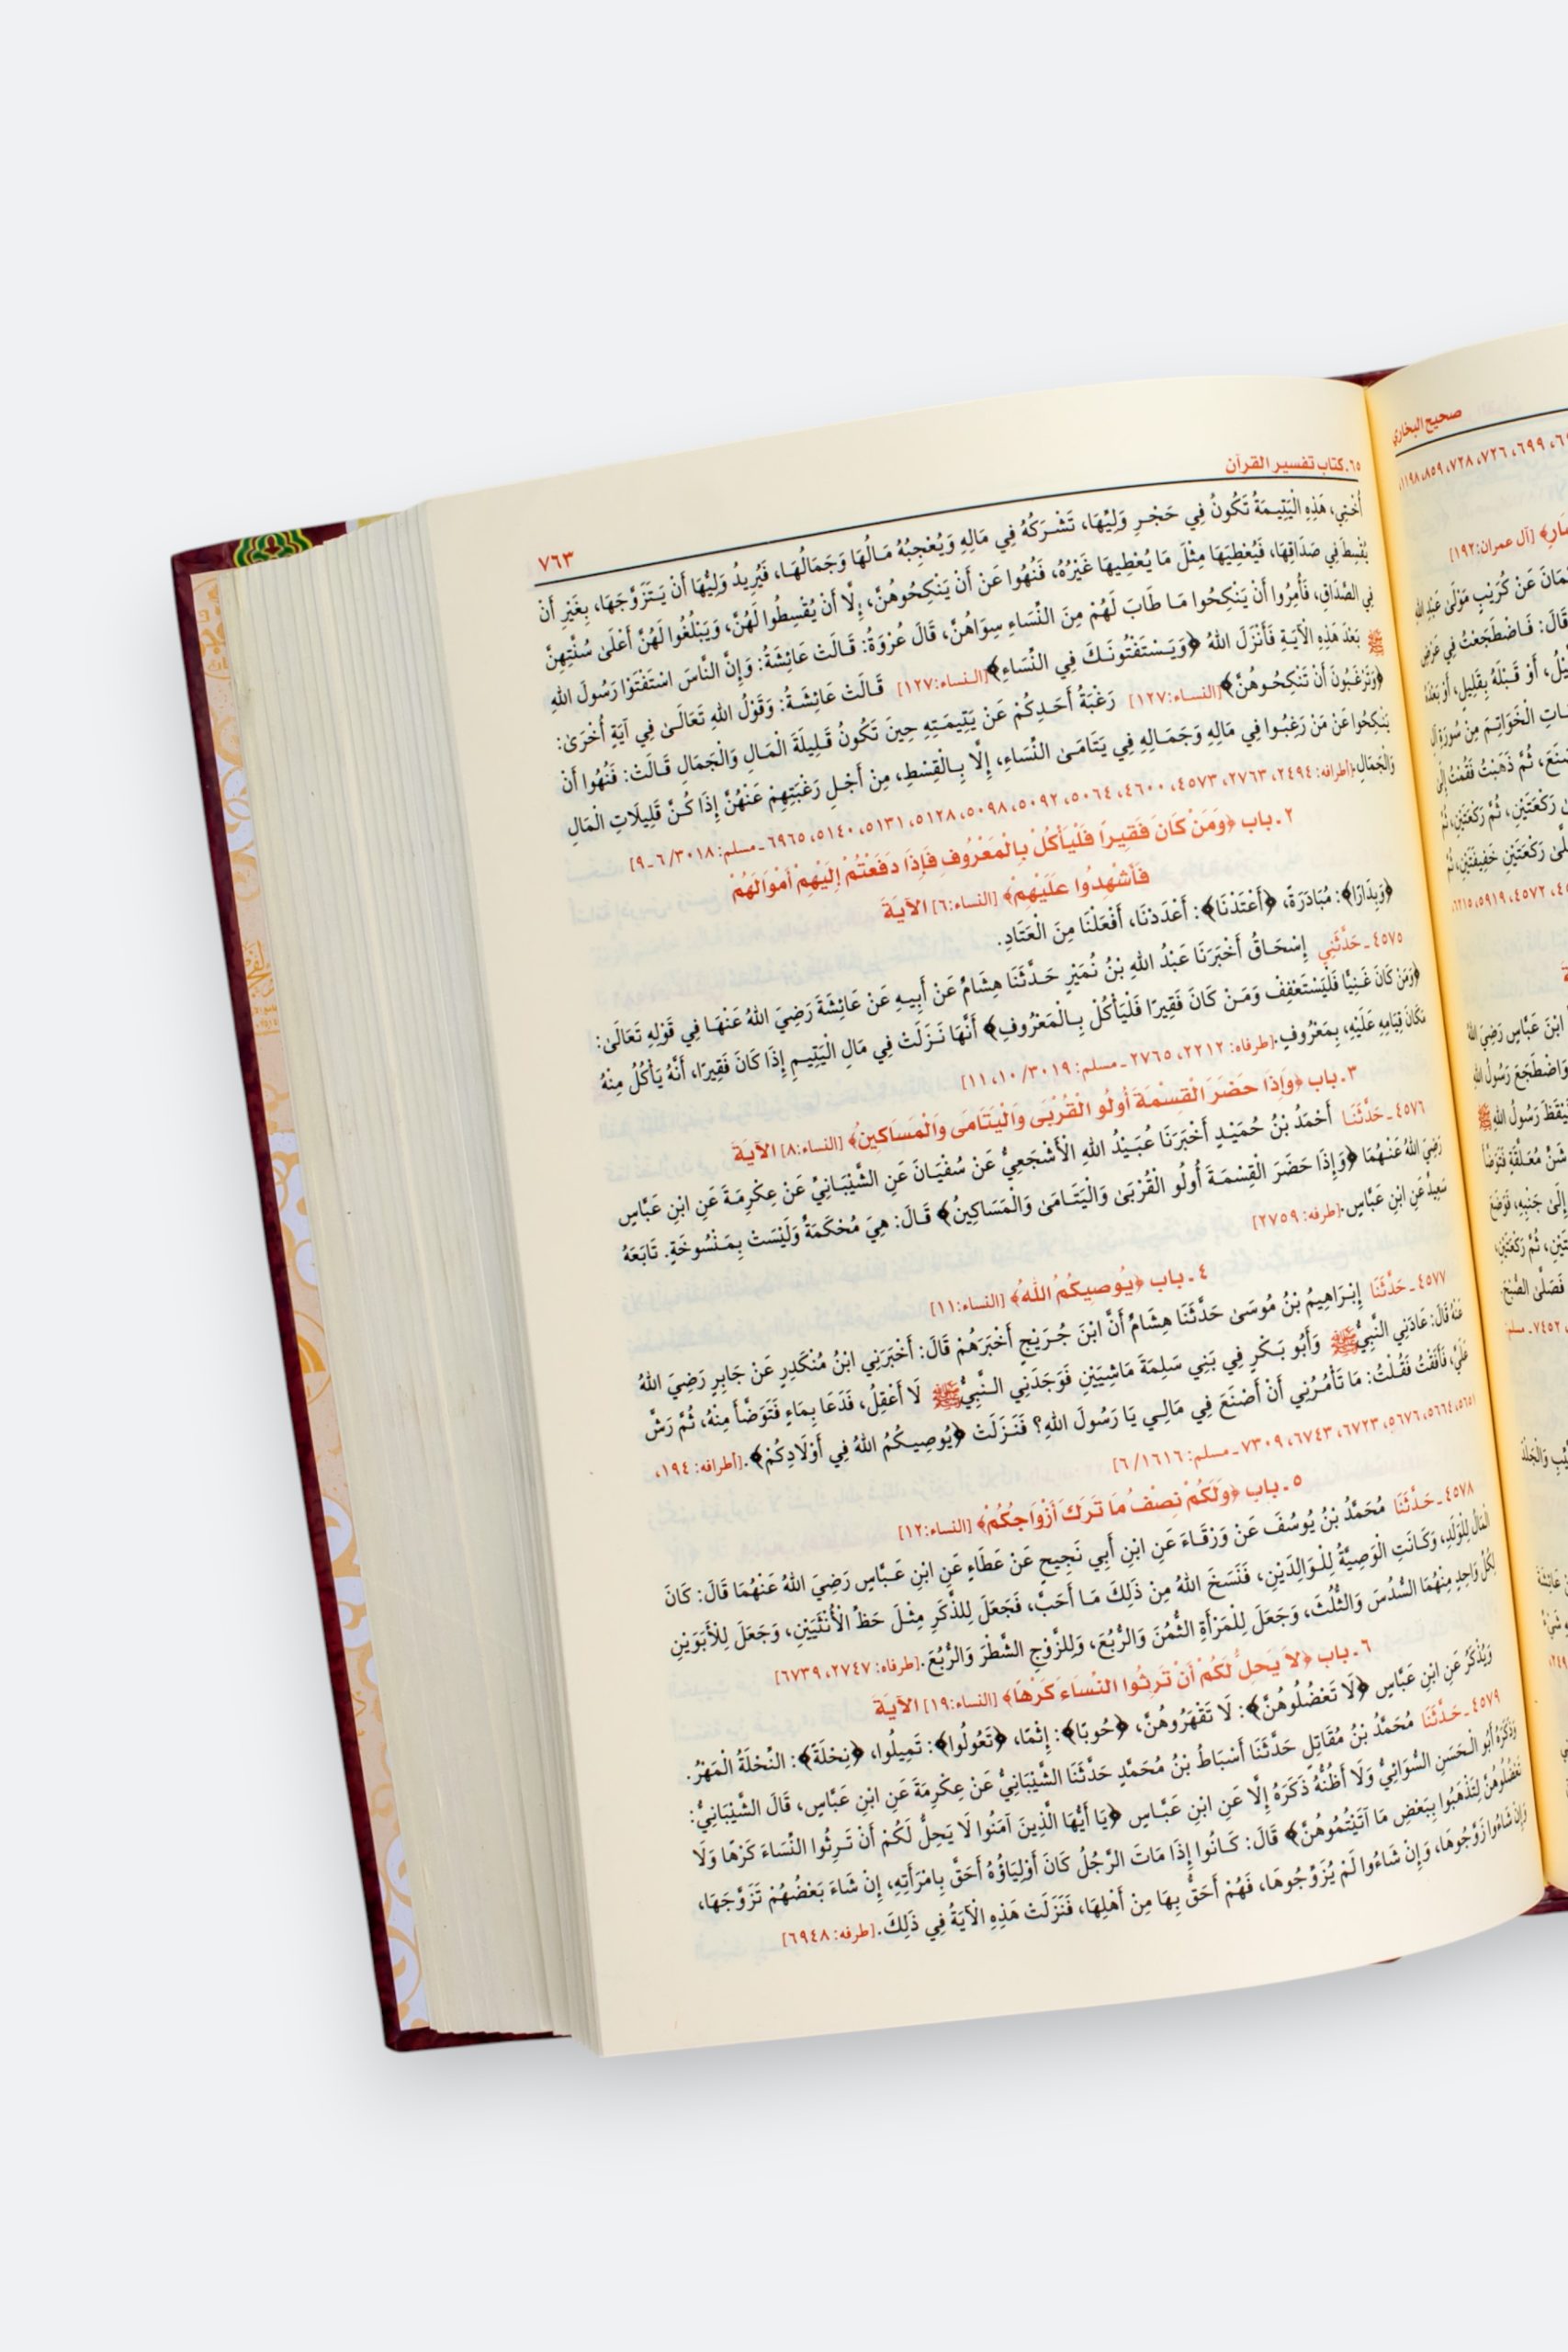 صحيح البخاري
[آل عمران:١٩٢]
عَنْ كُرَيْبٍ مَوْلَىٰ عَبْدِ اللهِ
قَالَ: فَاضْطَجَعْتُ فِي عَرْضِ
أَوْ قَبْلَهُ بِقَلِيلٍ، أَوْ بَعْدَهُ
الْخَوَاتِمَ مِنْ سُورَةِ آلِ
ثُمَّ ذَهَبْتُ فَقُمْتُ إِلَىٰ
رَكْعَتَيْنِ، ثُمَّ رَكْعَتَيْنِ، ثُمَّ
رَكْعَتَيْنِ خَفِيفَتَيْنِ، ثُمَّ
ابْنَ عَبَّاسٍ رَضِيَ اللهُ
وَاضْطَجَعَ رَسُولُ اللهِ
رَسُولُ اللهِ ﷺ
شَنٍّ مُعَلَّقَةٍ فَتَوَضَّأَ
إِلَىٰ جَنْبِهِ، فَوَضَعَ
ثُمَّ رَكْعَتَيْنِ،
فَصَلَّىٰ الصُّبْحَ.
٦٥. كتاب تفسير القرآن
٧٦٣
أُخْتِي، هَذِهِ الْيَتِيمَةُ تَكُونُ فِي حَجْرِ وَلِيِّهَا، تَشْرَكُهُ فِي مَالِهِ وَيُعْجِبُهُ مَالُهَا وَجَمَالُهَا، فَيُرِيدُ وَلِيُّهَا أَنْ يَتَزَوَّجَهَا، بِغَيْرِ أَنْ
يُقْسِطَ فِي صَدَاقِهَا، فَيُعْطِيَهَا مِثْلَ مَا يُعْطِيهَا غَيْرُهُ، فَنُهُوا عَنْ أَنْ يَنْكِحُوهُنَّ، إِلَّا أَنْ يُقْسِطُوا لَهُنَّ، وَيَبْلُغُوا لَهُنَّ أَعْلَىٰ سُنَّتِهِنَّ
فِي الصَّدَاقِ، فَأُمِرُوا أَنْ يَنْكِحُوا مَا طَابَ لَهُمْ مِنَ النِّسَاءِ سِوَاهُنَّ، قَالَ عُرْوَةُ: قَالَتْ عَائِشَةُ: وَإِنَّ النَّاسَ اسْتَفْتَوْا رَسُولَ اللهِ
ﷺ بَعْدَ هَذِهِ الْآيَةِ فَأَنْزَلَ اللهُ ﴿وَيَسْتَفْتُونَكَ فِي النِّسَاءِ﴾ [النساء:١٢٧] قَالَتْ عَائِشَةُ: وَقَوْلُ اللهِ تَعَالَىٰ فِي آيَةٍ أُخْرَىٰ:
﴿وَتَرْغَبُونَ أَنْ تَنْكِحُوهُنَّ﴾ [النساء:١٢٧] رَغْبَةُ أَحَدِكُمْ عَنْ يَتِيمَتِهِ حِينَ تَكُونُ قَلِيلَةَ الْمَالِ وَالْجَمَالِ قَالَتْ: فَنُهُوا أَنْ
يَنْكِحُوا عَنْ مَنْ رَغِبُوا فِي مَالِهِ وَجَمَالِهِ فِي يَتَامَىٰ النِّسَاءِ، إِلَّا بِالْقِسْطِ، مِنْ أَجْلِ رَغْبَتِهِمْ عَنْهُنَّ إِذَا كُنَّ قَلِيلَاتِ الْمَالِ
وَالْجَمَالِ. [أطرافه: ٢٤٩٤، ٢٧٦٣، ٤٥٧٣، ٤٦٠٠، ٥٠٦٤، ٥٠٩٢، ٥٠٩٨، ٥١٢٨، ٥١٣١، ٥١٤٠، ٦٩٦٥ ـ مسلم: ٣٠١٨/ ٦ ـ ٩]
٢ ـ باب ﴿وَمَنْ كَانَ فَقِيراً فَلْيَأْكُلْ بِالْمَعْرُوفِ فَإِذَا دَفَعْتُمْ إِلَيْهِمْ أَمْوَالَهُمْ
فَأَشْهِدُوا عَلَيْهِمْ﴾ [النساء:٦] الآيَةَ
﴿وَبِدَارًا﴾: مُبَادَرَةً، ﴿أَعْتَدْنَا﴾: أَعْدَدْنَا، أَفْعَلْنَا مِنَ الْعَتَادِ.
٤٥٧٥ ـ حَدَّثَنِي إِسْحَاقُ أَخْبَرَنَا عَبْدُ اللهِ بْنُ نُمَيْرٍ حَدَّثَنَا هِشَامٌ عَنْ أَبِيهِ عَنْ عَائِشَةَ رَضِيَ اللهُ عَنْهَا فِي قَوْلِهِ تَعَالَىٰ:
﴿وَمَنْ كَانَ غَنِيًّا فَلْيَسْتَعْفِفْ وَمَنْ كَانَ فَقِيرًا فَلْيَأْكُلْ بِالْمَعْرُوفِ﴾ أَنَّهَا نَزَلَتْ فِي مَالِ الْيَتِيمِ إِذَا كَانَ فَقِيرًا، أَنَّهُ يَأْكُلُ مِنْهُ
مَكَانَ قِيَامِهِ عَلَيْهِ، بِمَعْرُوفٍ. [طرفاه: ٢٢١٢، ٢٧٦٥ ـ مسلم: ٣٠١٩/ ١٠، ١١]
٣ ـ باب ﴿وَإِذَا حَضَرَ الْقِسْمَةَ أُولُو الْقُرْبَى وَالْيَتَامَى وَالْمَسَاكِينُ﴾ [النساء:٨] الآيَةَ
٤٥٧٦ ـ حَدَّثَنَا أَحْمَدُ بْنُ حُمَيْدٍ أَخْبَرَنَا عُبَيْدُ اللهِ الْأَشْجَعِيُّ عَنْ سُفْيَانَ عَنِ الشَّيْبَانِيِّ عَنْ عِكْرِمَةَ عَنِ ابْنِ عَبَّاسٍ
رَضِيَ اللهُ عَنْهُمَا ﴿وَإِذَا حَضَرَ الْقِسْمَةَ أُولُو الْقُرْبَىٰ وَالْيَتَامَىٰ وَالْمَسَاكِينُ﴾ قَالَ: هِيَ مُحْكَمَةٌ وَلَيْسَتْ بِمَنْسُوخَةٍ. تَابَعَهُ
سَعِيدٌ عَنِ ابْنِ عَبَّاسٍ. [طرفه: ٢٧٥٩]
٤ ـ باب ﴿يُوصِيكُمُ اللهُ﴾ [النساء:١١]
٤٥٧٧ ـ حَدَّثَنَا إِبْرَاهِيمُ بْنُ مُوسَىٰ حَدَّثَنَا هِشَامٌ أَنَّ ابْنَ جُرَيْجٍ أَخْبَرَهُمْ قَالَ: أَخْبَرَنِي ابْنُ مُنْكَدِرٍ عَنْ جَابِرٍ رَضِيَ اللهُ
عَنْهُ قَالَ: عَادَنِي النَّبِيُّ ﷺ وَأَبُو بَكْرٍ فِي بَنِي سَلِمَةَ مَاشِيَيْنِ فَوَجَدَنِي النَّبِيُّ ﷺ لَا أَعْقِلُ، فَدَعَا بِمَاءٍ فَتَوَضَّأَ مِنْهُ، ثُمَّ رَشَّ
عَلَيَّ، فَأَفَقْتُ فَقُلْتُ: مَا تَأْمُرُنِي أَنْ أَصْنَعَ فِي مَالِي يَا رَسُولَ اللهِ؟ فَنَزَلَتْ ﴿يُوصِيكُمُ اللهُ فِي أَوْلَادِكُمْ﴾. [أطرافه: ١٩٤،
٥٦٥١، ٥٦٦٤، ٥٦٧٦، ٦٧٢٣، ٦٧٤٣، ٧٣٠٩ ـ مسلم: ١٦١٦/ ٦]
٥ ـ باب ﴿وَلَكُمْ نِصْفُ مَا تَرَكَ أَزْوَاجُكُمْ﴾ [النساء:١٢]
٤٥٧٨ ـ حَدَّثَنَا مُحَمَّدُ بْنُ يُوسُفَ عَنْ وَرْقَاءَ عَنِ ابْنِ أَبِي نَجِيحٍ عَنْ عَطَاءٍ عَنِ ابْنِ عَبَّاسٍ رَضِيَ اللهُ عَنْهُمَا قَالَ: كَانَ
الْمَالُ لِلْوَلَدِ، وَكَانَتِ الْوَصِيَّةُ لِلْوَالِدَيْنِ، فَنَسَخَ اللهُ مِنْ ذَلِكَ مَا أَحَبَّ، فَجَعَلَ لِلذَّكَرِ مِثْلَ حَظِّ الْأُنْثَيَيْنِ، وَجَعَلَ لِلْأَبَوَيْنِ
لِكُلِّ وَاحِدٍ مِنْهُمَا السُّدُسَ وَالثُّلُثَ، وَجَعَلَ لِلْمَرْأَةِ الثُّمُنَ وَالرُّبُعَ، وَلِلزَّوْجِ الشَّطْرَ وَالرُّبُعَ. [طرفاه: ٢٧٤٧، ٦٧٣٩]
٦ ـ باب ﴿لاَ يَحِلُّ لَكُمْ أَنْ تَرِثُوا النِّسَاءَ كَرْهًا﴾ [النساء:١٩] الآيَةَ
وَيُذْكَرُ عَنِ ابْنِ عَبَّاسٍ ﴿لَا تَعْضُلُوهُنَّ﴾: لَا تَقْهَرُوهُنَّ، ﴿حُوبًا﴾: إِثْمًا، ﴿تَعُولُوا﴾: تَمِيلُوا، ﴿نِحْلَةً﴾: النِّحْلَةُ الْمَهْرُ.
٤٥٧٩ ـ حَدَّثَنَا مُحَمَّدُ بْنُ مُقَاتِلٍ حَدَّثَنَا أَسْبَاطُ بْنُ مُحَمَّدٍ حَدَّثَنَا الشَّيْبَانِيُّ عَنْ عِكْرِمَةَ عَنِ ابْنِ عَبَّاسٍ، قَالَ الشَّيْبَانِيُّ:
وَذَكَرَهُ أَبُو الْحَسَنِ السُّوَائِيُّ وَلَا أَظُنُّهُ ذَكَرَهُ إِلَّا عَنِ ابْنِ عَبَّاسٍ ﴿يَا أَيُّهَا الَّذِينَ آمَنُوا لَا يَحِلُّ لَكُمْ أَنْ تَرِثُوا النِّسَاءَ كَرْهًا وَلَا
تَعْضُلُوهُنَّ لِتَذْهَبُوا بِبَعْضِ مَا آتَيْتُمُوهُنَّ﴾ قَالَ: كَانُوا إِذَا مَاتَ الرَّجُلُ كَانَ أَوْلِيَاؤُهُ أَحَقَّ بِامْرَأَتِهِ، إِنْ شَاءَ بَعْضُهُمْ تَزَوَّجَهَا،
وَإِنْ شَاءُوا زَوَّجُوهَا، وَإِنْ شَاءُوا لَمْ يُزَوِّجُوهَا، فَهُمْ أَحَقُّ بِهَا مِنْ أَهْلِهَا، فَنَزَلَتْ هَذِهِ الْآيَةُ فِي ذَلِكَ. [طرفه: ٦٩٤٨]